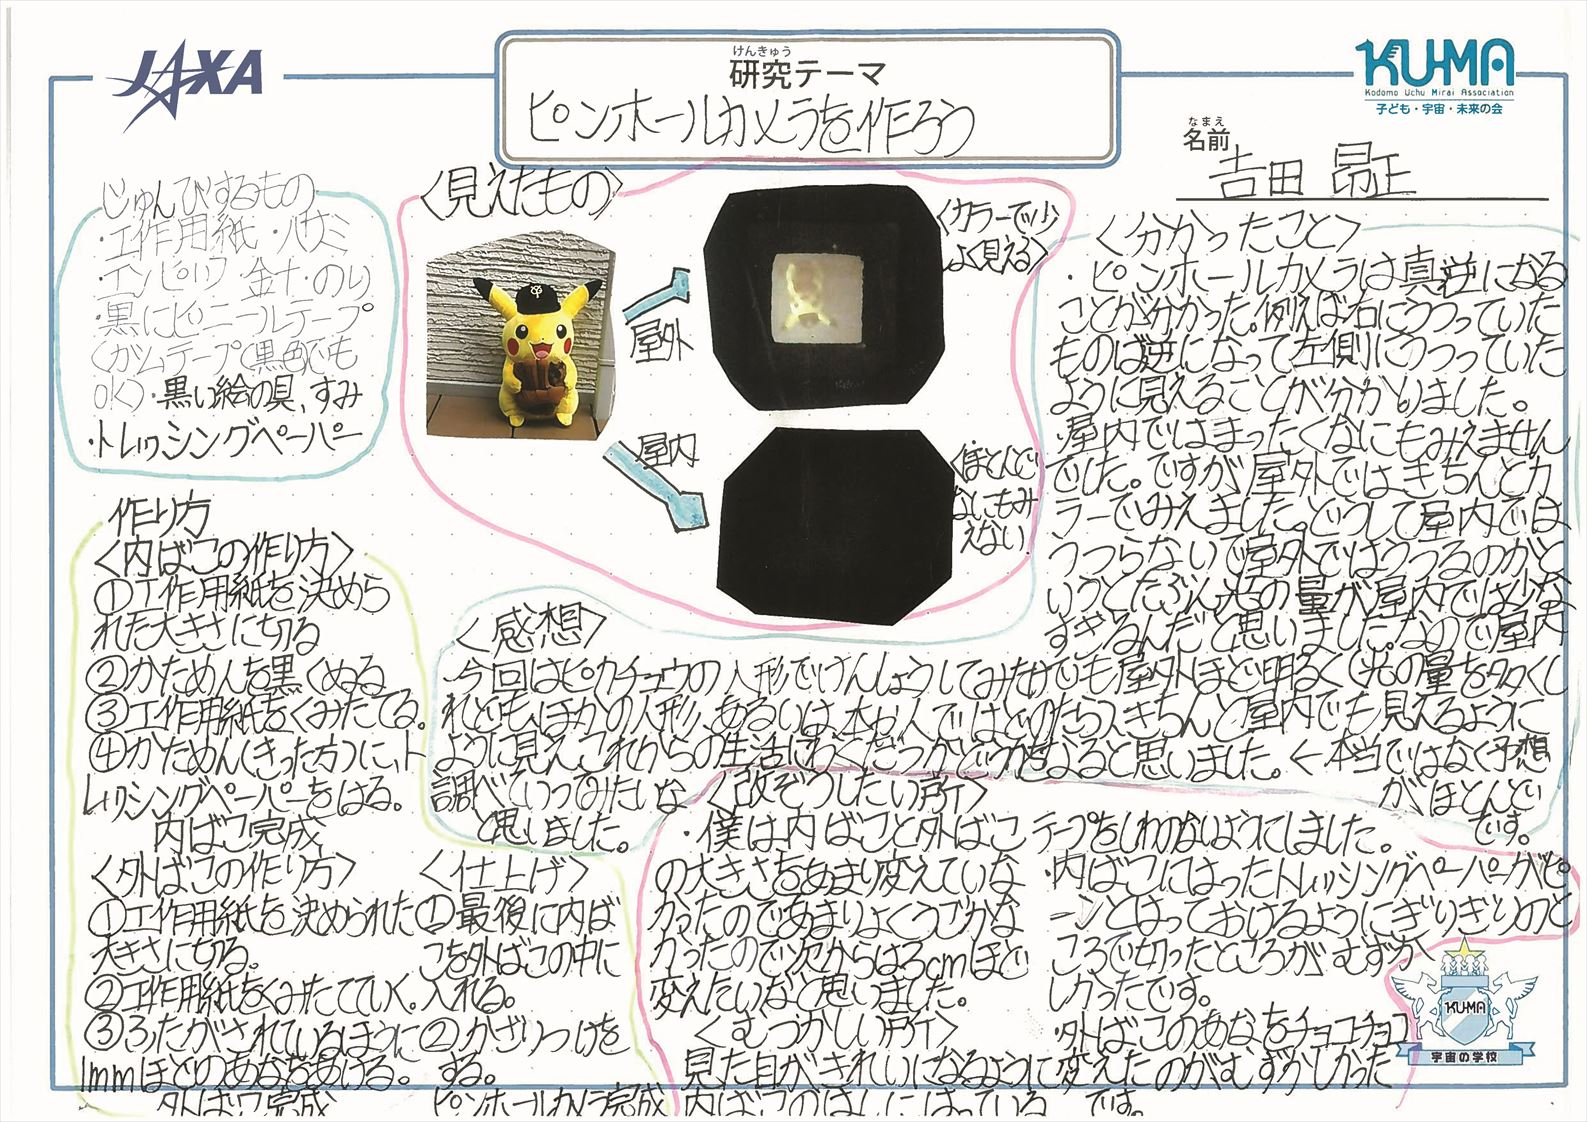 JAXA
けんきゅう
研究テーマ
ピンホールカメラを作ろう
KU-MA
Kodomo Uchu Mirai Association
子ども・宇宙・未来の会
なまえ
名前
吉田 昂正
じゅんびするもの
・工作用紙・ハサミ
・エンピツ 金十・のり
・黒にビニールテープ
(ガムテープ(黒色でも
OK)・黒い絵の具、すみ
・トレッシングペーパー
作り方
〈内ばこの作り方〉
①工作用紙を決めら
れた大きさに切る
②かためんを黒くぬる
③工作用紙をくみたてる。
④かためん(きった方)に、ト
レッシングペーパーをはる。
内ばこ完成
〈外ばこの作り方〉
①工作用紙を決められた
大きさに切る。
②工作用紙をくみたてていく。
③ふたがされているほうに
1mmほどのあなをあける。
外ばこ完成
〈仕上げ〉
①最後に内ば
こを外ばこの中に
入れる。
②かざりつけを
する。
ピンホールカメラ完成
〈見えたもの〉
屋外
〈カラーで少
しよく見える〉
屋内
〈ほとんど
なにもみ
えない〉
〈感想〉
今回はピカチュウの人形でけんしょうしてみたけ
れども、ほかの人形、あるいは、本や人ではどの
ように見え、これからの生活にやくだつかどうかを
調べていってみたいな
と思いました。
〈分かったこと〉
・ピンホールカメラは真逆になる
ことが分かった。例えば右にうつっていた
ものは逆になって左側にうつっていた
ように見えることが分かりました。
・屋内ではまったくなにもみえません
でした。ですが屋外ではきちんとカ
ラーでみえました。どうして屋内では
うつらないで室外ではうつるのかと
いうとたぶん光の量が屋内では少な
すぎるんだと思いました。なので屋内
でも屋外ほど明るく(光の量を多くし
たら)きちんと屋内でも見えるように
なると思いました。←本当ではなく予想
がほとんど
です。
〈改ぞうしたい所〉
・僕は内ばこと外ばこ
の大きさをあまり変えていな
かったのであまりよくうごかな
かったので次からは3cmほど
変えたいなと思いました。
〈むつかしい所〉
見た目がきれいになるように
内ばこのはしにはっている
テープをしわのないようにしました。
・内ばこにはったトレッシングペーパーがピ
ーンとはっておけるようにぎりぎりのと
ころで切ったところがむずか
しかったです。
・外ばこのあなをチョコチョコ
変えたのがむずかしかった
です。
KU-MA
宇宙の学校